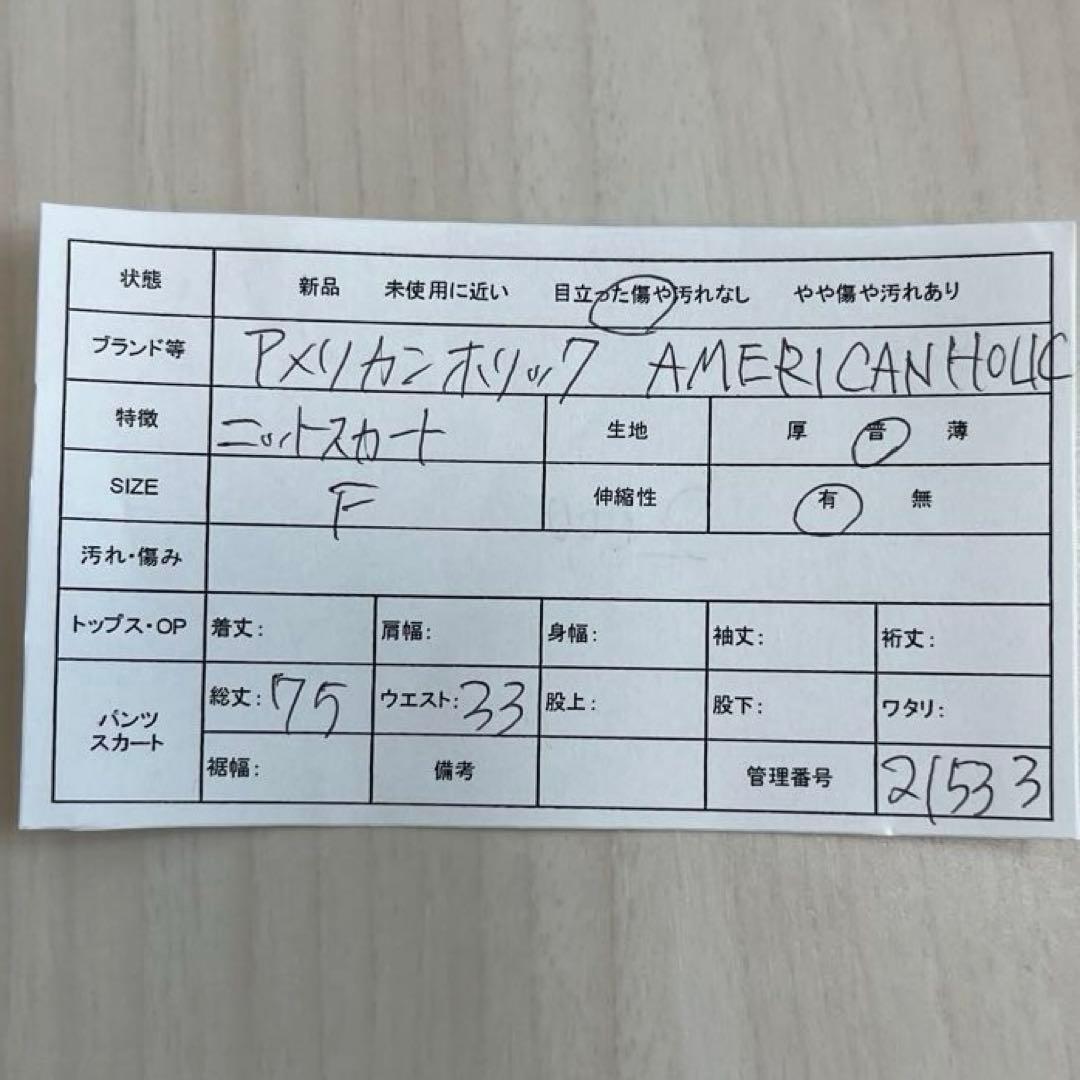 状態 新品 未使用に近い 目立った傷や汚れなし やや傷や汚れあり
ブランド等 アメリカンホリック AMERICAN HOLIC
特徴 ニットスカート 生地 厚 普 薄
SIZE F 伸縮性 有 無
汚れ・傷み
トップス・OP 着丈: 肩幅: 身幅: 袖丈: 裄丈:
パンツ
スカート
総丈:75 ウエスト:33 股上: 股下: ワタリ:
裾幅: 備考 管理番号 21533